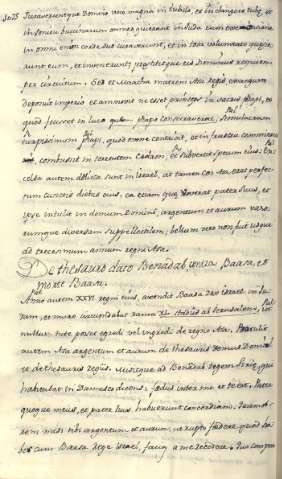 Juraveruntque Domino voce magna in jubilo, et in clangore tubę, et
in sonitu buccinarum omnes qui erant in Juda cum
in omni enim corde suo juraverunt, et in tota voluntate quęsie
runt eum, et invenerunt, pręstititque eis Dominus requiem
per circuitum. Sed et Maacha matrem Asa regis ex augusto
deposuit imperio et amovit ne esset princeps in sacris Priapi, et
quod fecisset in luco quem Priapo consecraverat, simulacrum
turpissimum Priapi, quod omne contrivit, et in frusta comminu
combusit in torrentem Cedron, et subvertit specum eius. Ex
celsa autem derelicta sunt in israel, at tamen cor Asa, erat perfec-
tum cunctis diebus suis, ea etiam quę voverat pater suus, et
ipse intulit in domum Domini, argentum et aurum vaso
rumque diversam suppellectilem, bellum vero non fuit usque
ad trecesimum annum regni Asa.
De thesauro dato Benadab contra Baasa, et
morte Baasa.
Anno autem XXXVI regni eius, ascendit Baasa rex israel, in Ju-
dam, et muro circumdabat Rama XL stadiis ab Jerusalem, ut
nullus tute posset egredi vel ingredi de regno Asa. Protulit
autem Asa argentum et aurum de thesauris Domus Domini
et de thesauris regis. misitque ad Benadab Regem Sirię, qui
habitabat in Damasco dicens: fœdus inter me et te est, Pater
quoque meus, et pater tuus habuerunt concordiam. Quamob-
rem misi tibi argentum et aurum, ut rupto foedere quod ha-
bes cum Baasa Rege israel, facias a me recedere. Quo comper